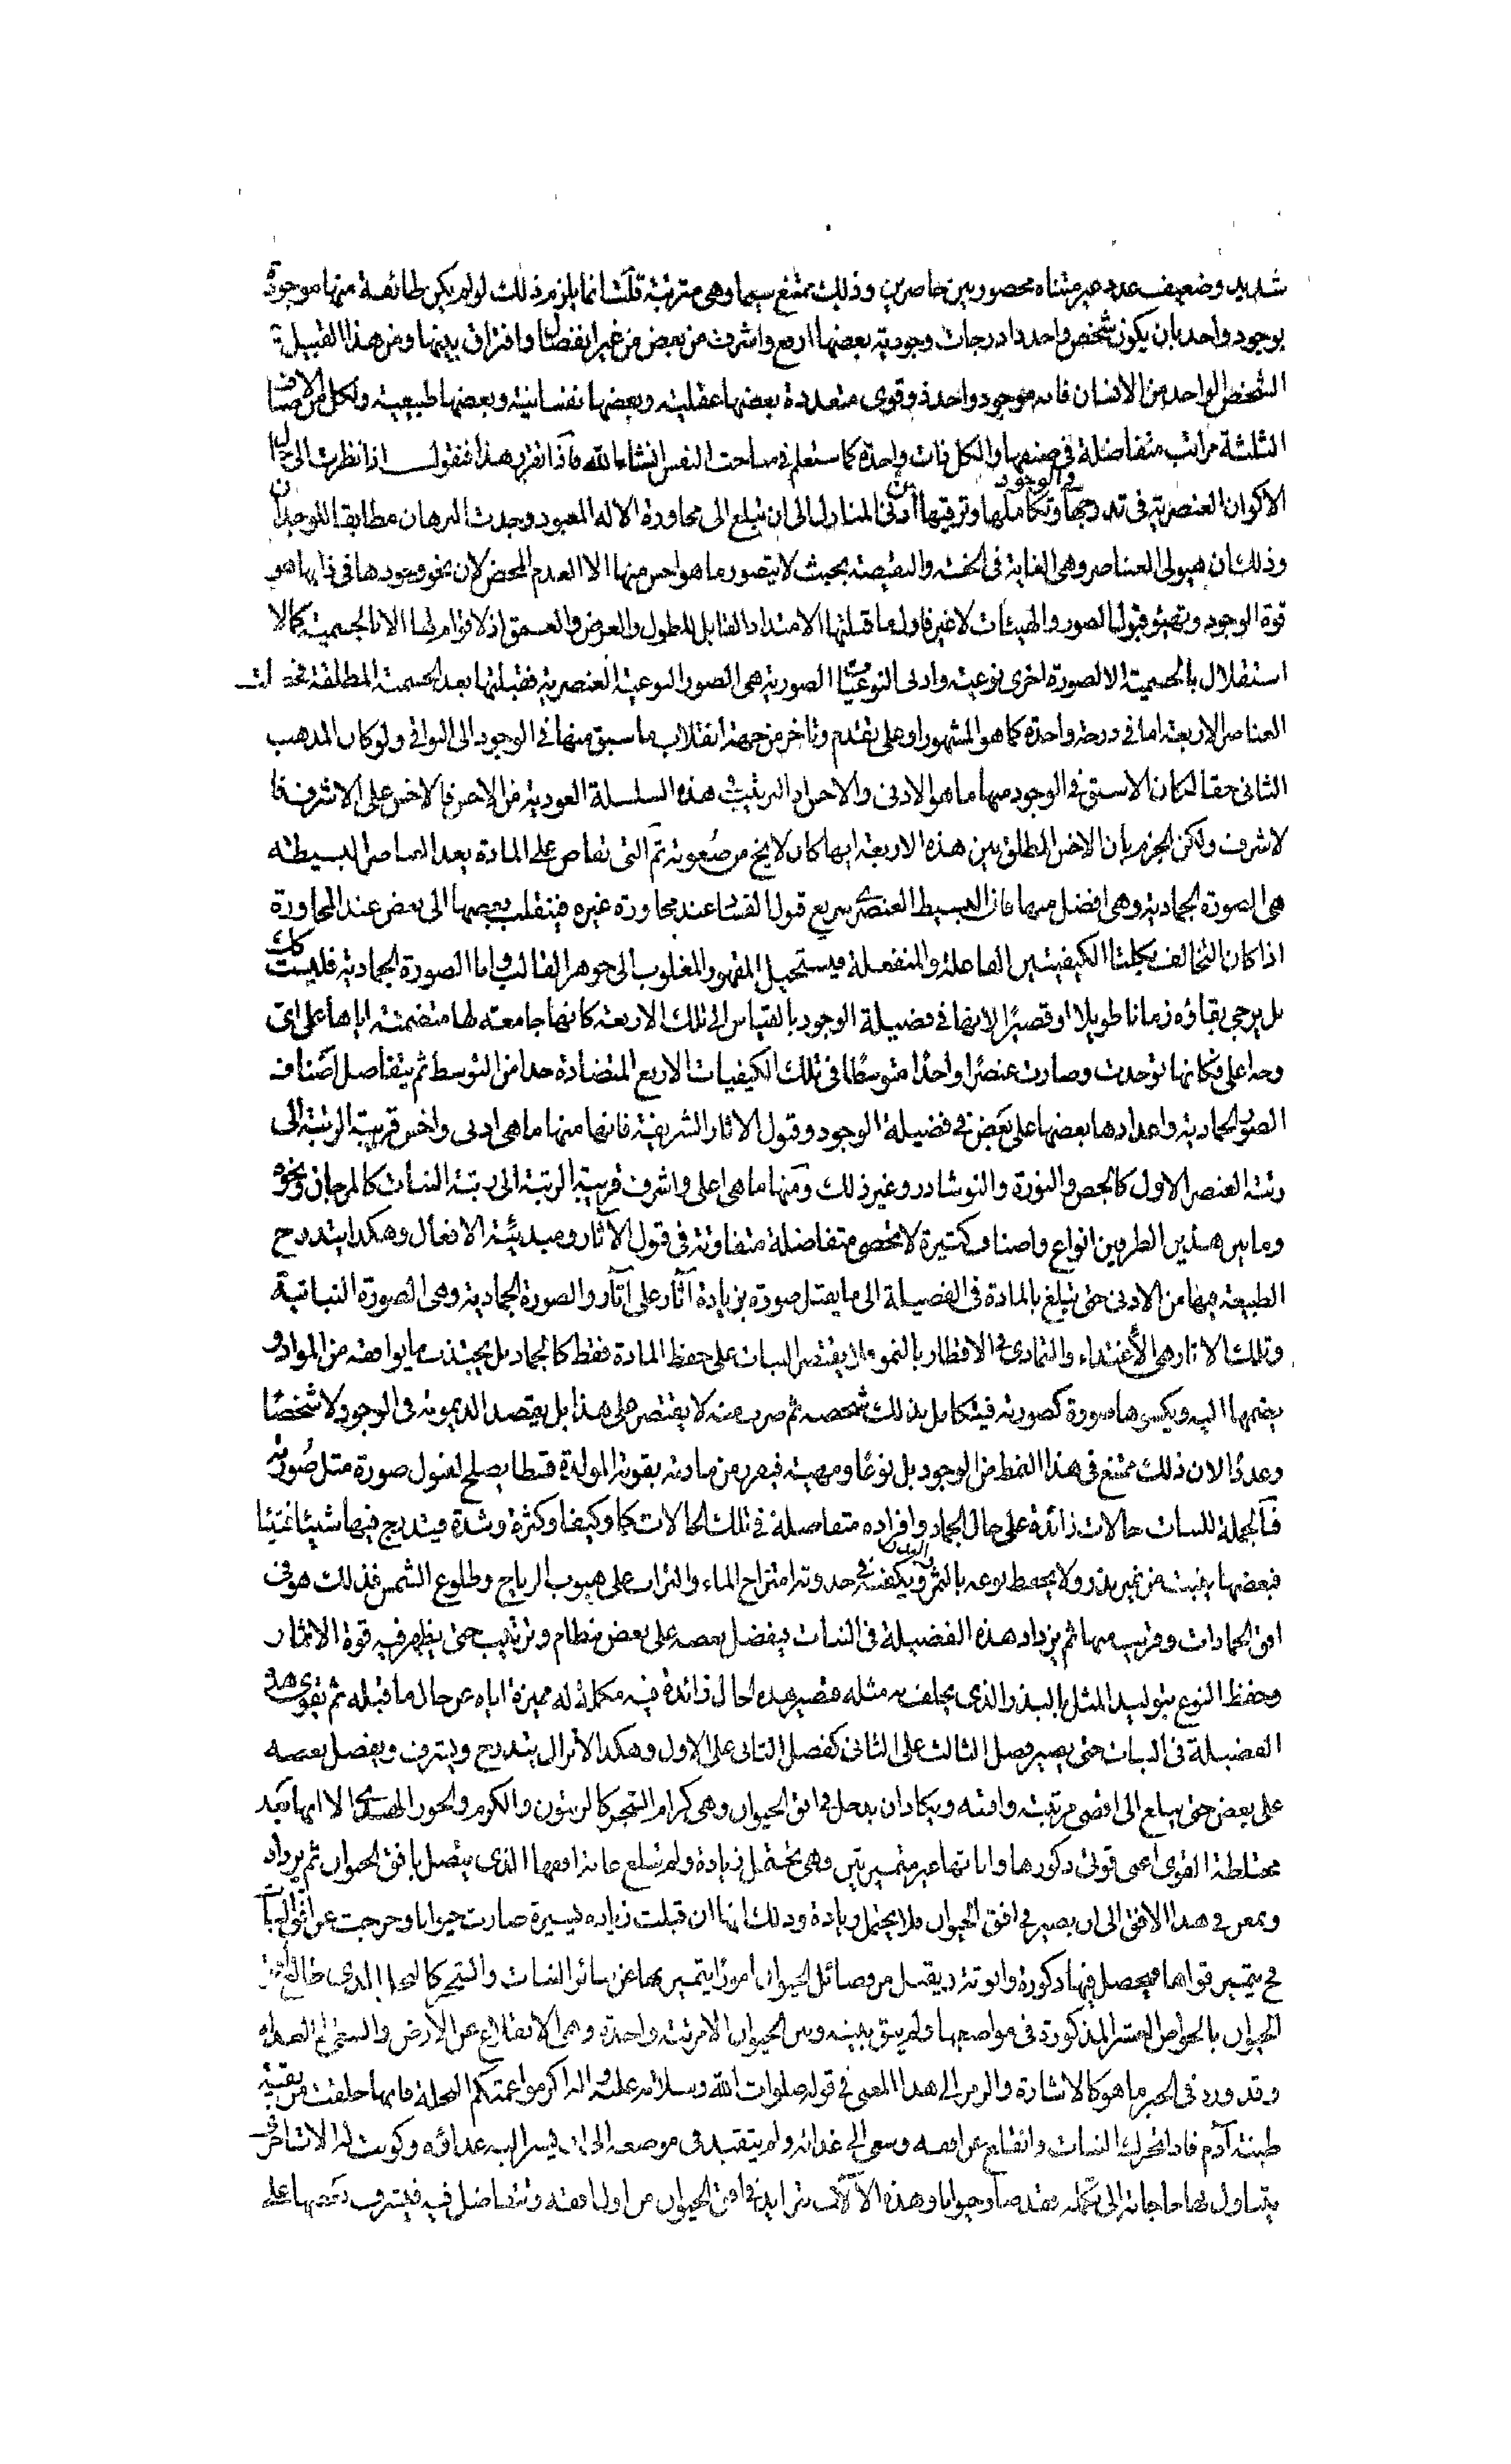 شديد وضعيف عدد غير متناه محصور بين حاصرين وذلك ممتنع سيما وهى مترتبة قلت انما يلزم ذلك لو لم يكن طائفة منها موجودة
بوجود واحد بان يكون شخص واحد ذا درجات وجودية بعضها ارفع واشرف من بعض من غير انفصال وافتراق بينها ومن هذا القبيل
الشخص الواحد من الانسان فانه موجود واحد ذو قوى متعددة بعضها عقلية وبعضها نفسانية وبعضها طبيعية ولكل من الاصناف
الثلثة مراتب متفاضلة فى صنفها والكل ذات واحدة كما ستعلم فى مباحث النفس انشاء الله فاذا تقرر هذا فنقول اذا نظرت الى حال
الاكوان العنصرية فى تدرجها فى الوجود وتكاملها وترقيها من ادنى المنازل الى ان تبلغ الى مجاورة الاله المعبود وجدت البرهان مطابقا للوجدان
وذلك ان هيولى العناصر وهى الغاية فى الخسة والنقيصة بحيث لا يتصور ما هو اخس منها الا العدم المحض لان نحو وجودها فى ذاتها هو
قوة الوجود وتهيؤ قبول الصور والهيئات لا غير فاول ما قبلتها الامتداد القابل للطول والعرض والعمق اذ لا قوام لها الا بالجسمية كما لا
استقلال بالجسمية الا لصورة اخرى نوعية وادنى النوعيات الصورية هى الصور النوعية العنصرية فقبلتها بعد الجسمية المطلقة فحصلت
العناصر الاربعة اما فى درجة واحدة كما هو المشهور او على تقدم وتاخر من جهة انقلاب ما سبق منها فى الوجود الى البواقى ولو كان المذهب
الثانى حقا لكان الاسبق فى الوجود منها ما هو الادنى والاخس اذ الترتيب فى هذه السلسلة العودية من الاخس فالاخس على الاشرف فا
لاشرف ولكن الجزم بان الاخس المطلق بين هذه الاربعة ايها كان لا يخ من صعوبة ثم التى تفاض على المادة بعد العناصر البسيطة
هى الصورة الجمادية وهى افضل منها فان البسيط العنصرى سريع قبول الفساد عند مجاورة غيره فينقلب بعضها الى بعض عند المجاورة
اذا كان التخالف بكلتا الكيفيتين الفاعلة والمنفعلة فيستحيل المقهور المغلوب الى جوهر الغالب واما الصورة الجمادية فليست كذلك
بل يرجى بقاؤه زمانا طويلا او قصيرا لانها فى فضيلة الوجود بالقياس الى تلك الاربعة كانها جامعة لها متضمنة اياها على اى
وجه اعلى فكانها توحدت وصارت عنصرا واحدا متوسطا فى تلك الكيفيات الاربع المتضادة حدا من التوسط ثم يتفاضل اصناف
الصور الجمادية واعدادها بعضها على بعض فى فضيلة الوجود وقبول الاثار الشريفة فانها منها ما هى ادنى واخس قريبة الرتبة الى
رتبة العنصر الاول كالجص والنورة والنوشادر وغير ذلك ومنها ما هى اعلى واشرف قريبة الرتبة الى رتبة النبات كالمرجان ونحوه
وما بين هذين الطرفين انواع واصناف كثيرة لا تحصى متفاضلة متفاوتة فى قبول الآثار ومبدئية الافعال وهكذا يتدرج
الطبيعة فيها من الادنى حتى تبلغ بالمادة فى الفضيلة الى ما يقبل صورة بزيادة آثار على آثار والصورة الجمادية وهى الصورة النباتية
وتلك الاثار هى الاغتذاء والتمادى فى الاقطار بالنمو فلا يقتصر النبات على حفظ المادة فقط كالجماد بل يجتذب ما يوافقه من المواد و
يضمها اليه ويكسوها صورة كصورته فيتكامل بذلك شخصه ثم ضرب منه لا يقتصر على هذا بل يقصد الديمومة فى الوجود لا شخصا
وعددا لان ذلك ممتنع فى هذا النمط من الوجود بل نوعا ومهية فيفرز من مادته بقوته المولدة قسطا يصلح لقبول صورة مثل صورته
فبالجملة للنبات حالات زائدة على حال الجماد وافراده متفاضلة فى تلك الحالات كما وكيفا وكثرة وشدة فيتدرج فيها شيئا فشيئا
فبعضها ينبت من غير بذر ولا يحفظ نوعه بالثمر والبذر ويكفيه فى حدوثه امتزاج الماء والتراب على هبوب الرياح وطلوع الشمس فذلك هو فى
افق الجمادات وقريب منها ثم يزداد هذه الفضيلة فى النبات فيفضل بعضه على بعض بنظام وترتيب حتى يظهر فيه قوة الاثمار
وحفظ النوع بتوليد المثل بالبذر الذى يخلف به مثله فتصير هذه الحال زائدة فيه مكملة له مميزة اياه عن حال ما قبله ثم تقوى هذه
الفضيلة فى النبات حتى يصير فضل الثالث على الثانى كفضل الثانى على الاول وهكذا لا يزال يتدرج ويشرف ويفضل بعضه
على بعض حتى يبلغ الى اقصى مرتبته وافقه ويكاد ان يدخل فى افق الحيوان وهى كرام الشجر كالزيتون والكرم والجوز الهندى الا انها بعد
مختلطة القوى اعنى قوتى ذكورها واناثها غير متميزتين وهى تحتمل زيادة ولم تبلغ غاية افقها الذى يتصل بافق الحيوان ثم يزداد
ويمعن فى هذا الافق الى ان يصير فى افق الحيوان فلا يحتمل زيادة وذلك انها ان قبلت زيادة يسيرة صارت حيوانا وخرجت عن افق النبات
فح يتميز قواها ويحصل فيها ذكورة وانوثة ويقبل من فضائل الحيوان امورا يتميز بها عن سائر النبات والشجر كالنخل الذى طالع افق
الحيوان بالخواص العشر المذكورة فى مواضعها ولم يبق بينه وبين الحيوان الا مرتبة واحدة وهى الانقلاع عن الارض والسعى الى الغذاء
وقد ورد فى الخبر ما هو كالاشارة والرمز الى هذا المعنى فى قوله صلوات الله وسلامه عليه واله اكرموا عمتكم النخلة فانها خلقت من بقية
طينة آدم فاذا تحرك النبات وانقلع عن افقه وسعى الى غذائه ولم يتقيد فى موضعه الى ان يسير اليه غذاؤه وكونت له الات اخر
يتناول بها حاجاته التى تكمله فقد صار حيوانا وهذه الآلات تتزايد فى افق الحيوان من اول افقه وتتفاضل فيه فيشرف بعضها على